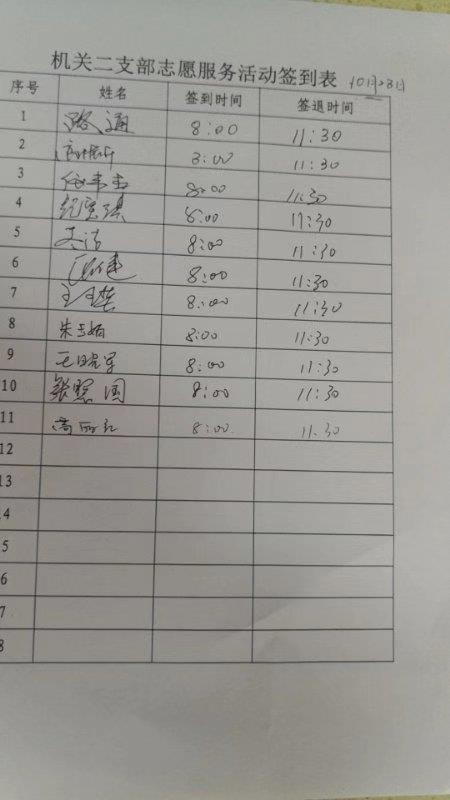 机关二支部志愿服务活动签到表 10月23日
序号 姓名 签到时间 签退时间
1 路通 8:00 11:30
2 8:00 11:30
3 8:00 11:30
4 8:00 11:30
5 8:00 11:30
6 8:00 11:30
7 8:00 11:30
8 朱玉娟 8:00 11:30
9 王晓军 8:00 11:30
10 张照国 8:00 11:30
11 高丽红 8:00 11.30
12
13
4
5
6
7
8